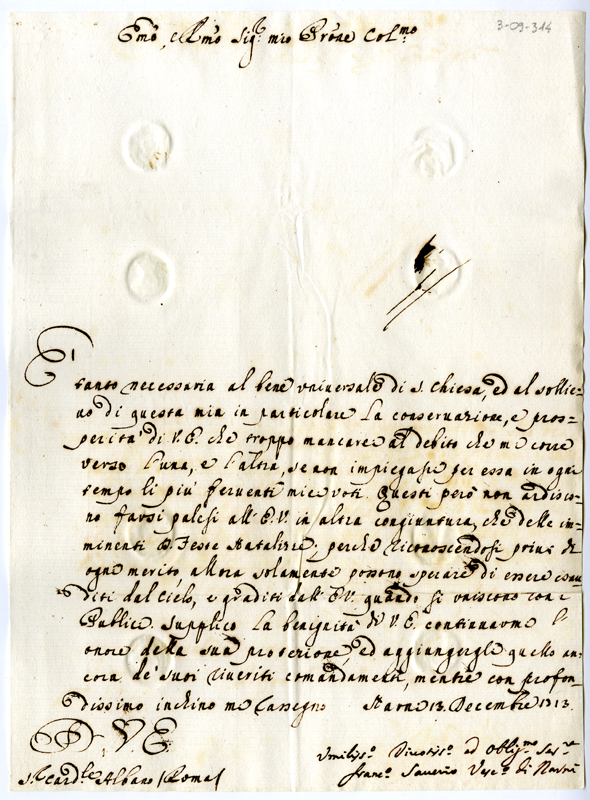 3-09-314
Emō, e Rmō Sig.r mio Prōne Col.mo
E'
tanto necessaria al bene vniuersale di S. Chiesa, ed al sollie=
uo di questa mia in particolare la conseruazione, e pros=
perità di V.E. che troppo mancarei al debito che mi corre
verso l'una, e l'altra, se non impiegassi per essa in ogni
tempo li più feruenti miei voti. Questi però non ardisco=
no farsi palesi all'E.V. in altra congiuntura, che delle im=
minenti S. Feste Natalizie, perche riconoscendosi priui di
ogni merito allora solamente possono sperare di essere esau
diti dal Cielo, e graditi dall'E.V. quando si vniscono con i
Publici. Supplico la benignità di V.E. continuarmi l'
onore della sua protezione, ed aggiungergli quello an=
cora de' suoi riueriti comandamenti, mentre con profon=
dissimo inchino mi rassegno Narni 13. Decembre 1713.
D. V. E.
S.r Card.le Albano /Roma/
Vmiliss.o Diuotiss.o ed Obligmo Ser.re
Franc.o Sauerio Vesc.o di Narni